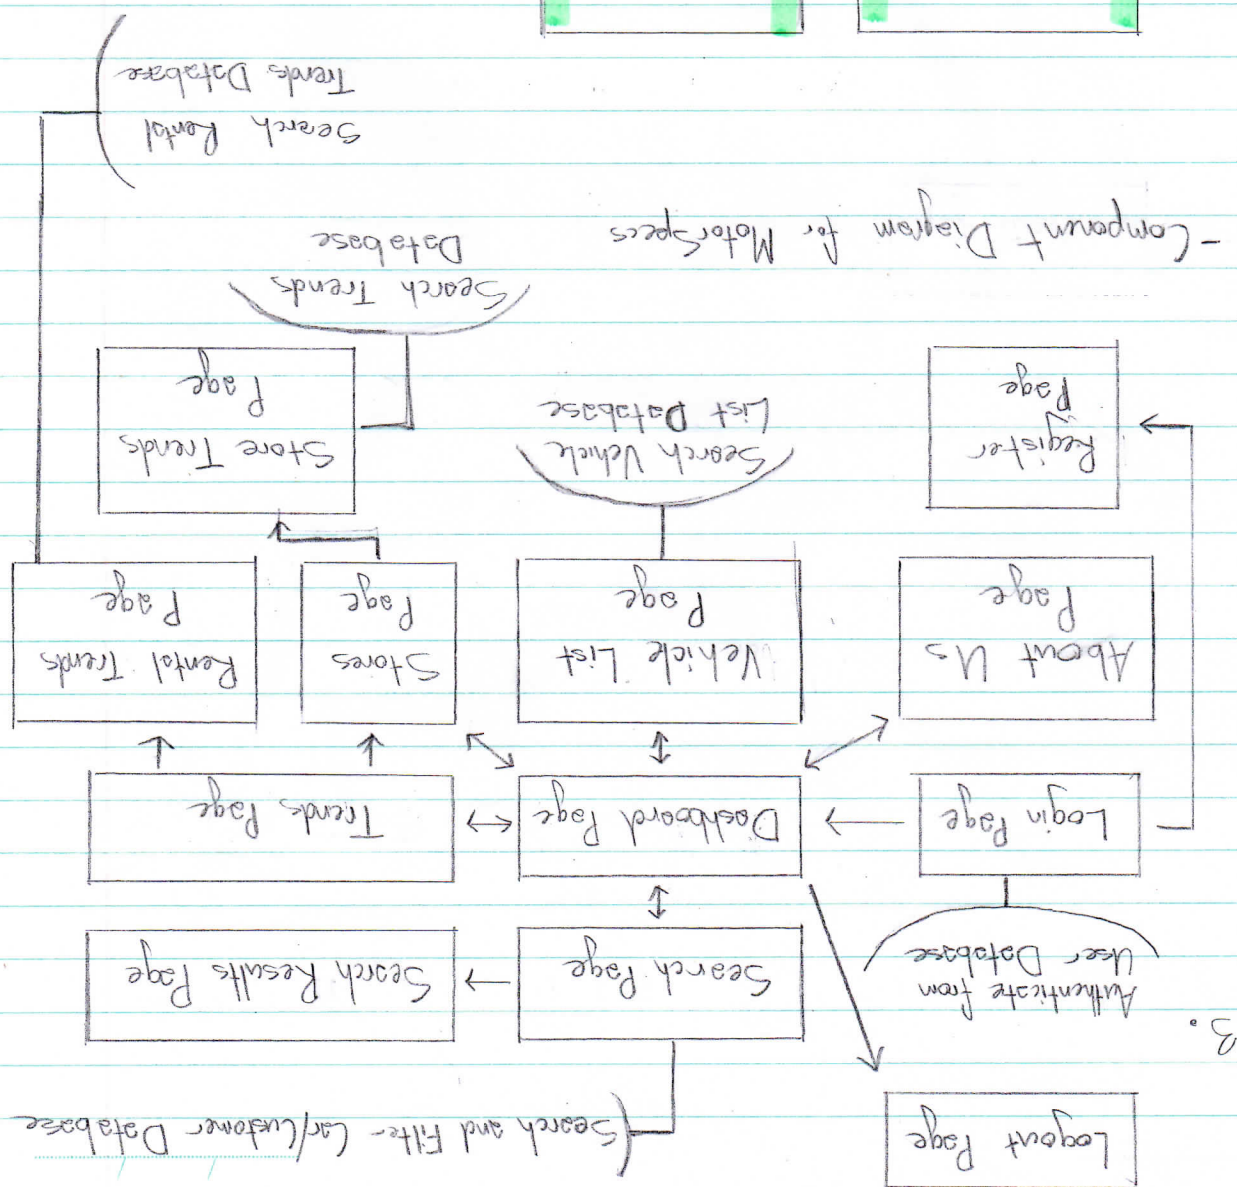 Logout Page
Search and Filter - Car/Customer Database
3.
Authenticate from
User Database
Search Page
Search Results Page
Login Page
Dashboard Page
Trends Page
About Us
Page
Vehicle List
Page
Stores
Page
Rental Trends
Page
Register
Page
Search Vehicle
List Database
Store Trends
Page
Search Trends
Database
- Component Diagram for MotorSpecs
Search Rental
Trends Database